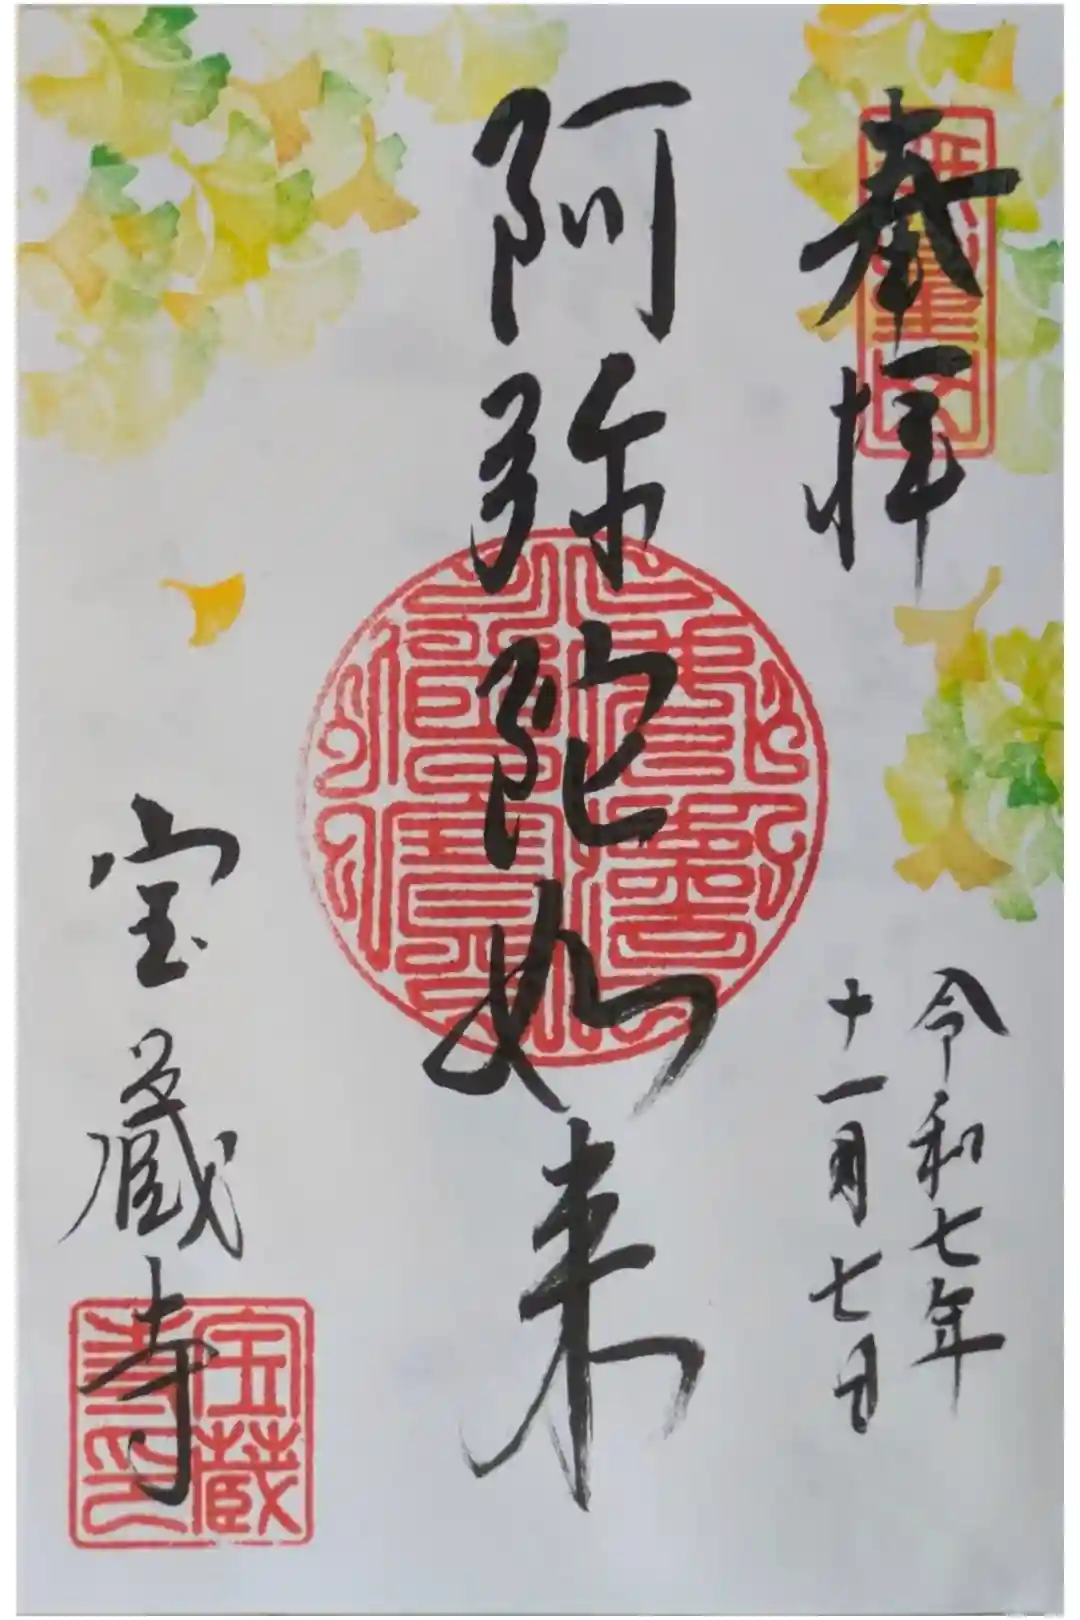 奉拝
令和七年
十一月七日
阿弥陀如来
宝蔵寺
宝蔵
寺印